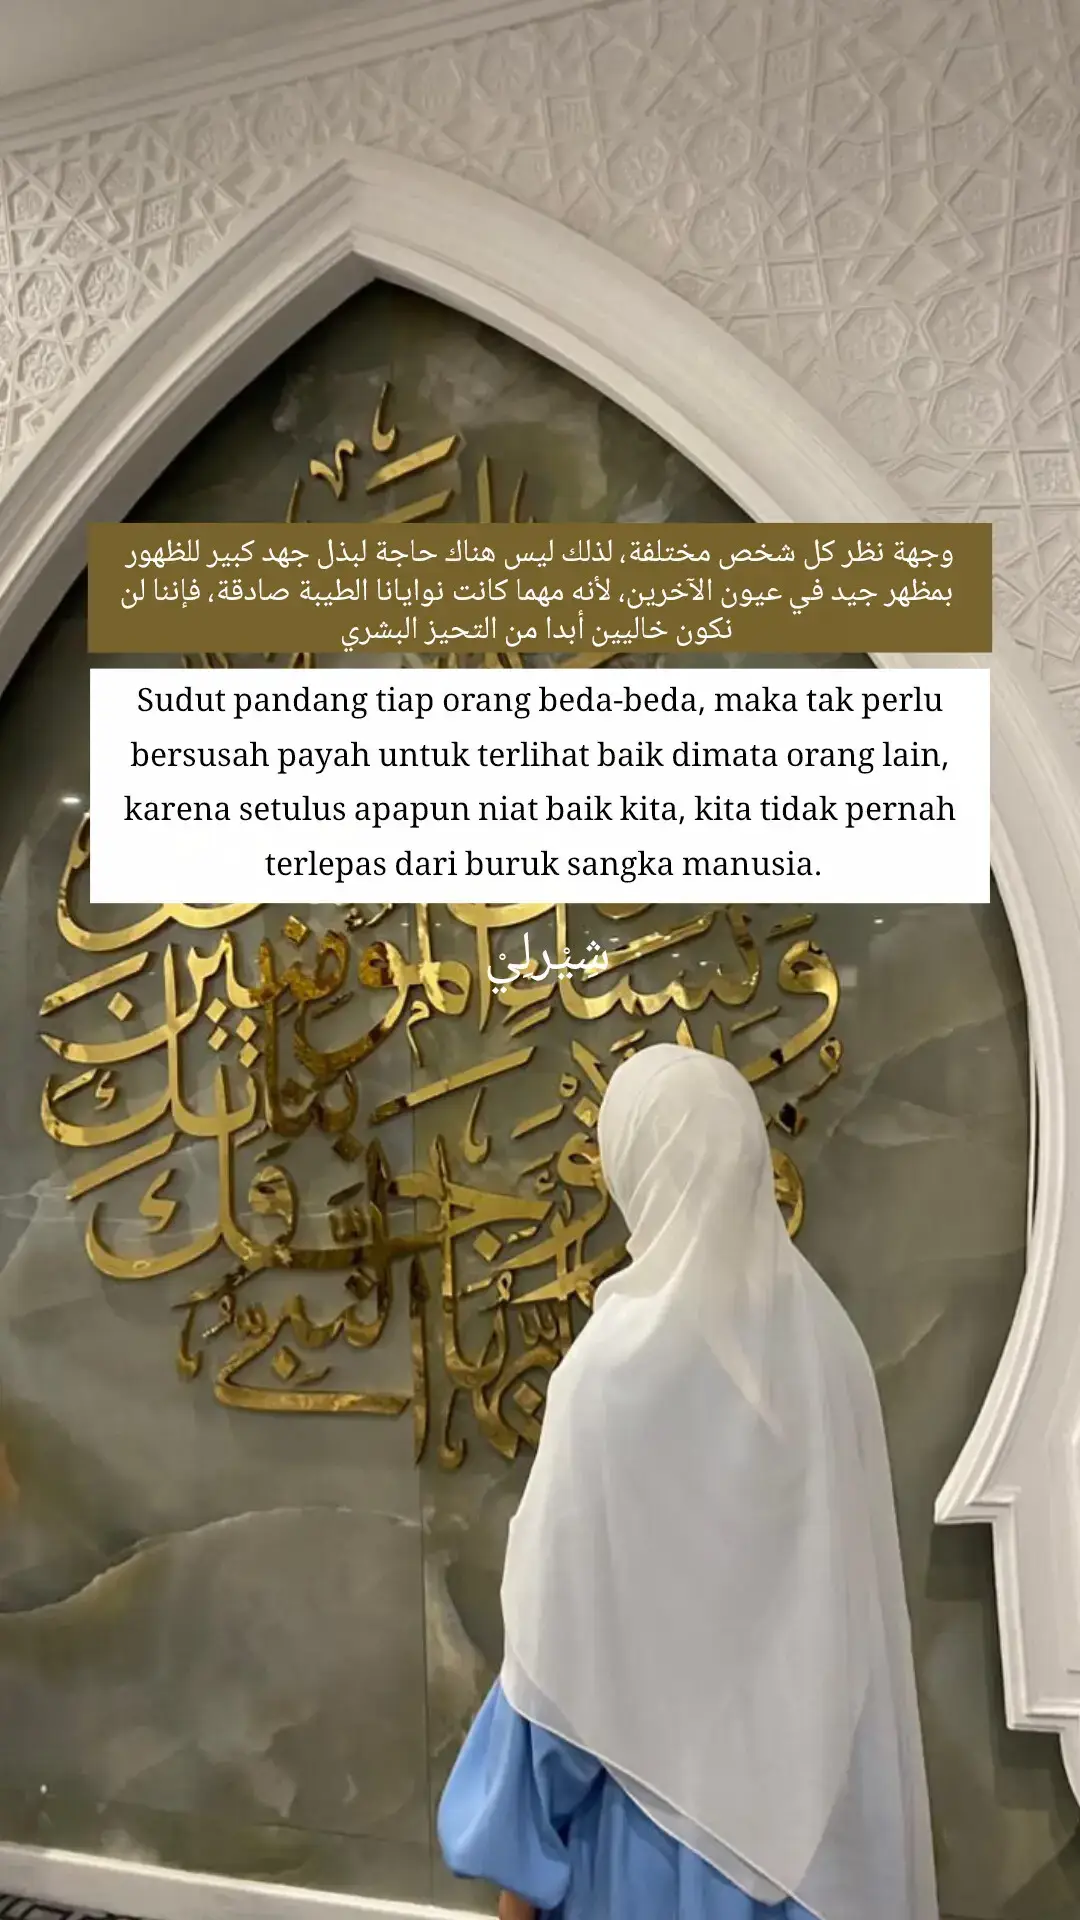 وجهة نظر كل شخص مختلفة، لذلك ليس هناك حاجة لبذل جهد كبير للظهور
بمظهر جيد في عيون الآخرين، لأنه مهما كانت نوايانا الطيبة صادقة، فإننا لن
نكون خاليين أبدا من التحيز البشري
Sudut pandang tiap orang beda-beda, maka tak perlu
bersusah payah untuk terlihat baik dimata orang lain,
karena setulus apapun niat baik kita, kita tidak pernah
terlepas dari buruk sangka manusia.
شِيْرلِيْ
وَنِسَاءِ الْمُؤْمِنِينَ
بناتك
قل لأزواجك
يا أيها النبي